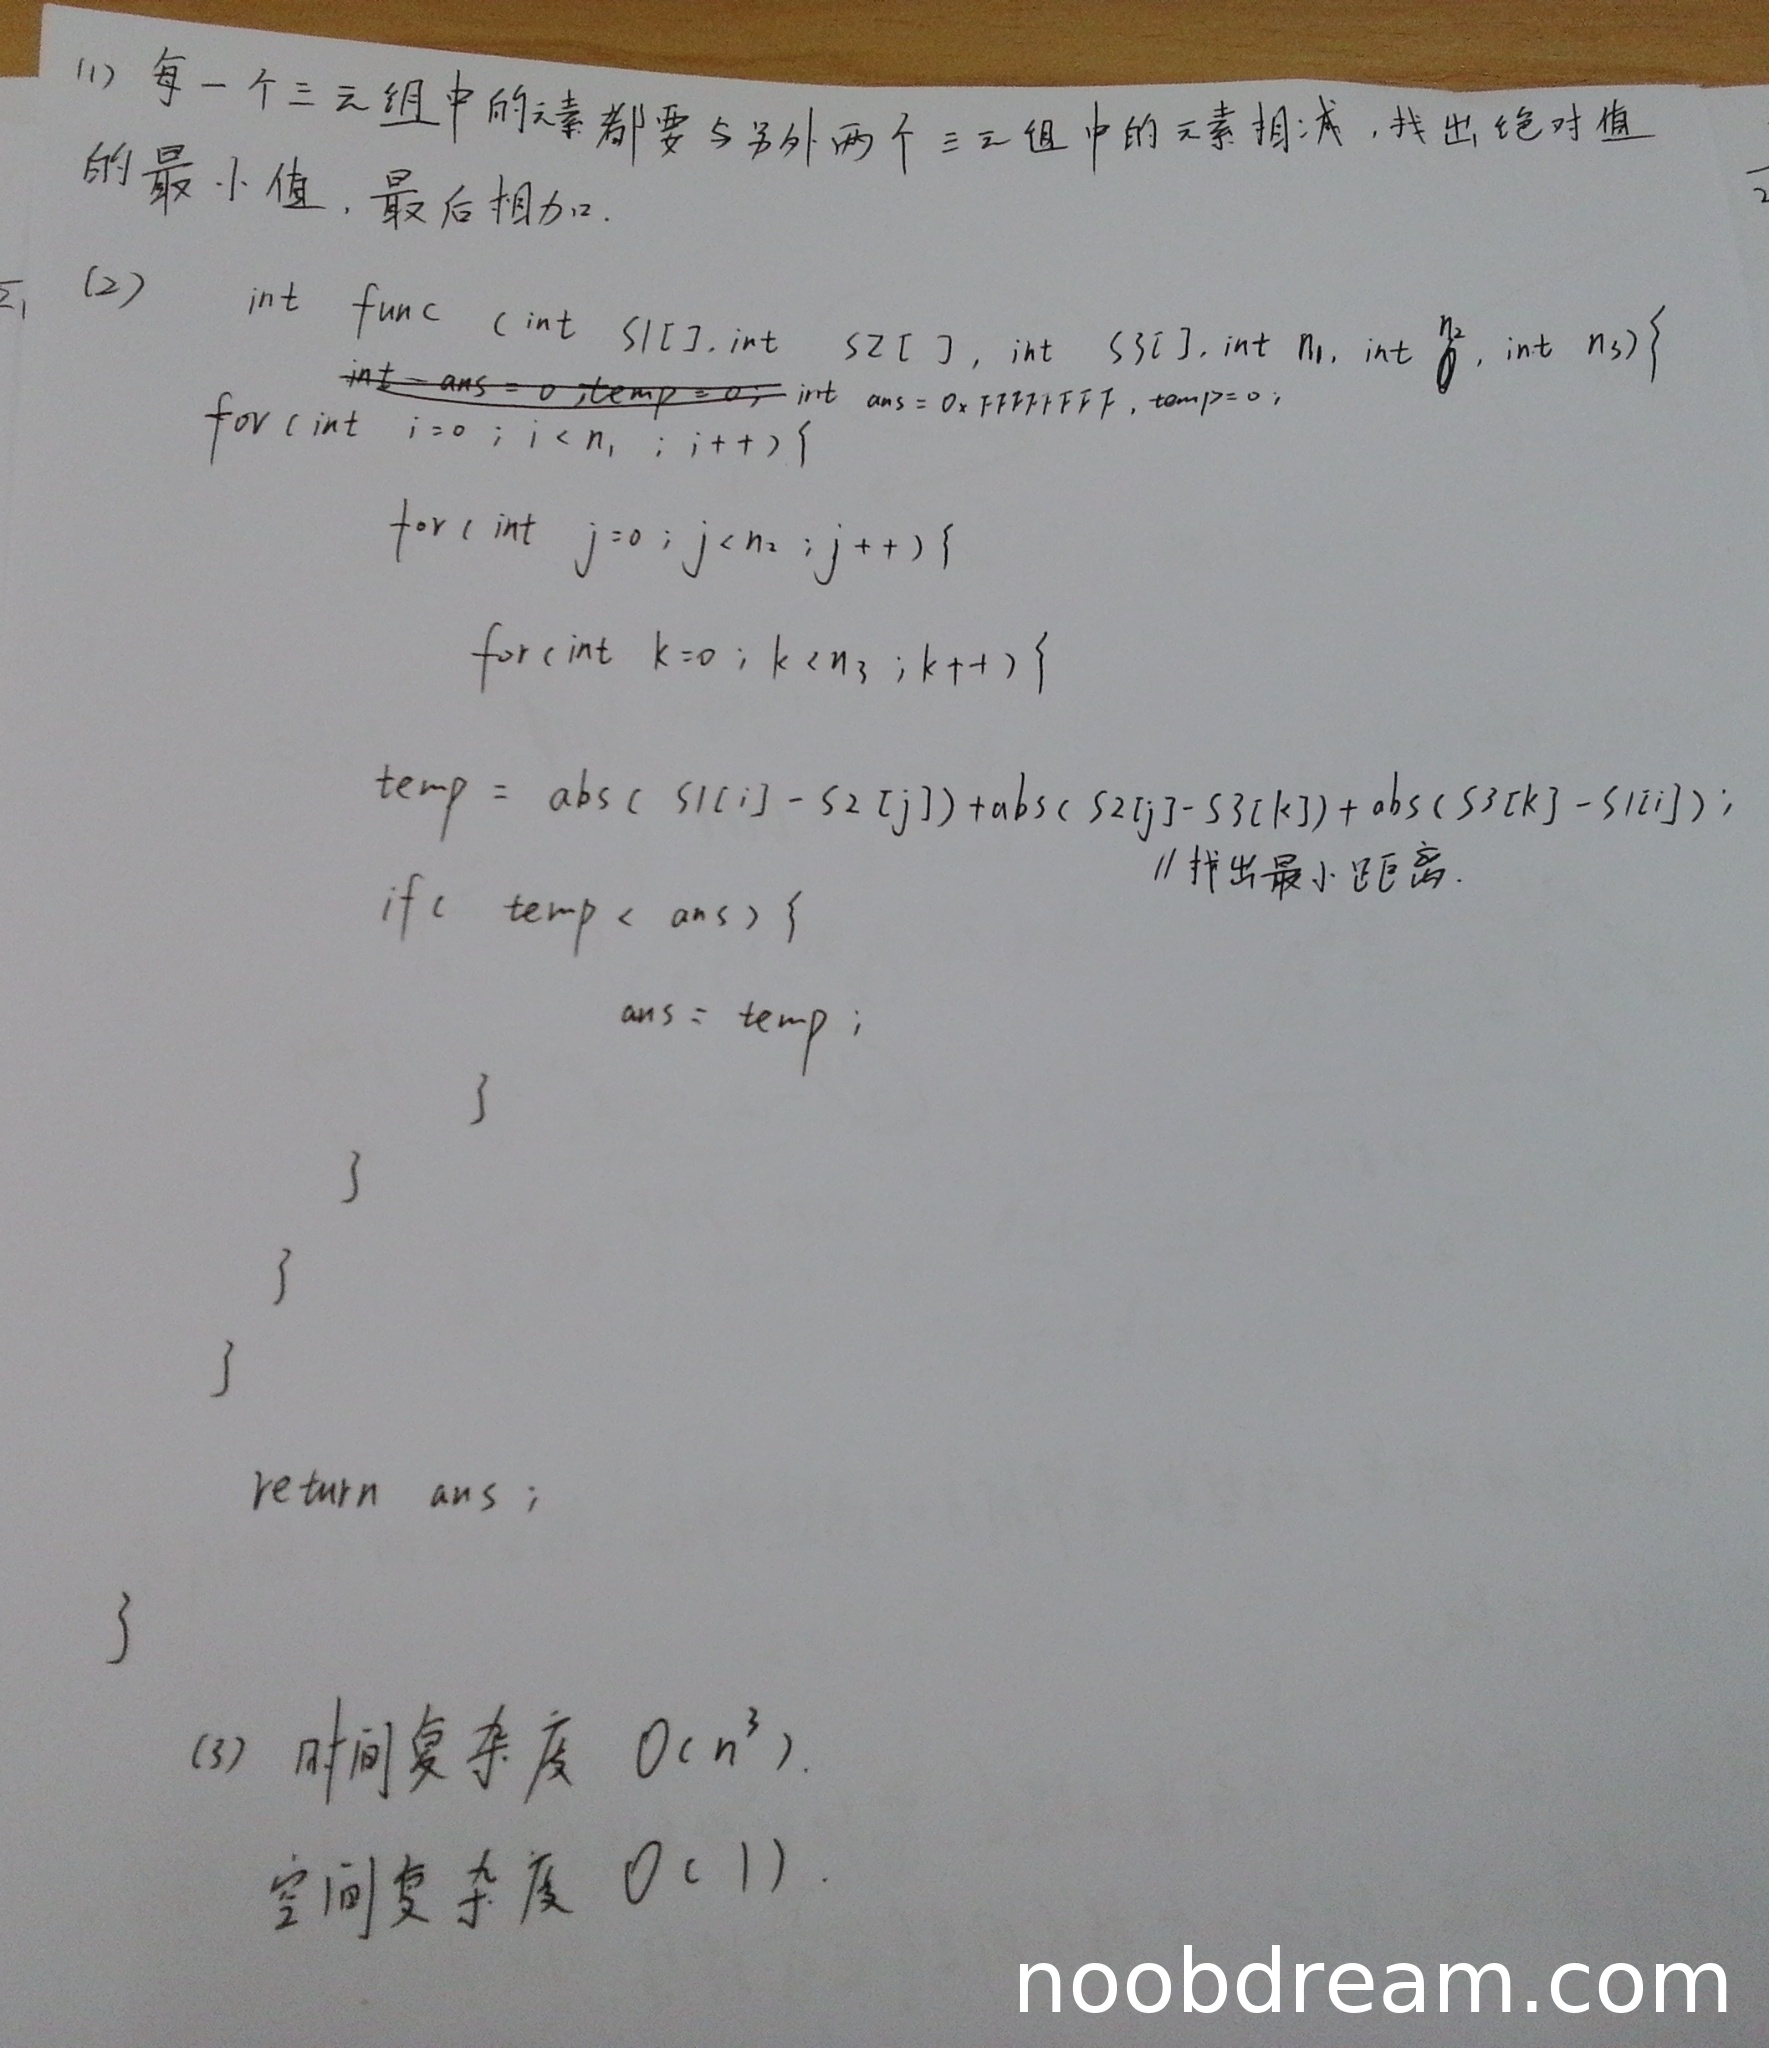 (1) 每一个三元组中的元素都要与另外两个三元组中的元素相减，找出绝对值
的最小值，最后相加.
(2) int func (int S1[], int S2[], int S3[], int n1, int n2, int n3){
int ans = 0; temp = 0; int ans = 0xFFFFFFFF, temp=0;
for(int i=0; i<n1; i++){
for(int j=0; j<n2; j++){
for(int k=0; k<n3; k++){
temp = abs(S1[i]-S2[j])+abs(S2[j]-S3[k])+abs(S3[k]-S1[i]);
//找出最小距离.
if( temp < ans){
ans = temp;
}
}
}
}
return ans;
}
(3) 时间复杂度 O(n³).
空间复杂度 O(1).
noobdream.com